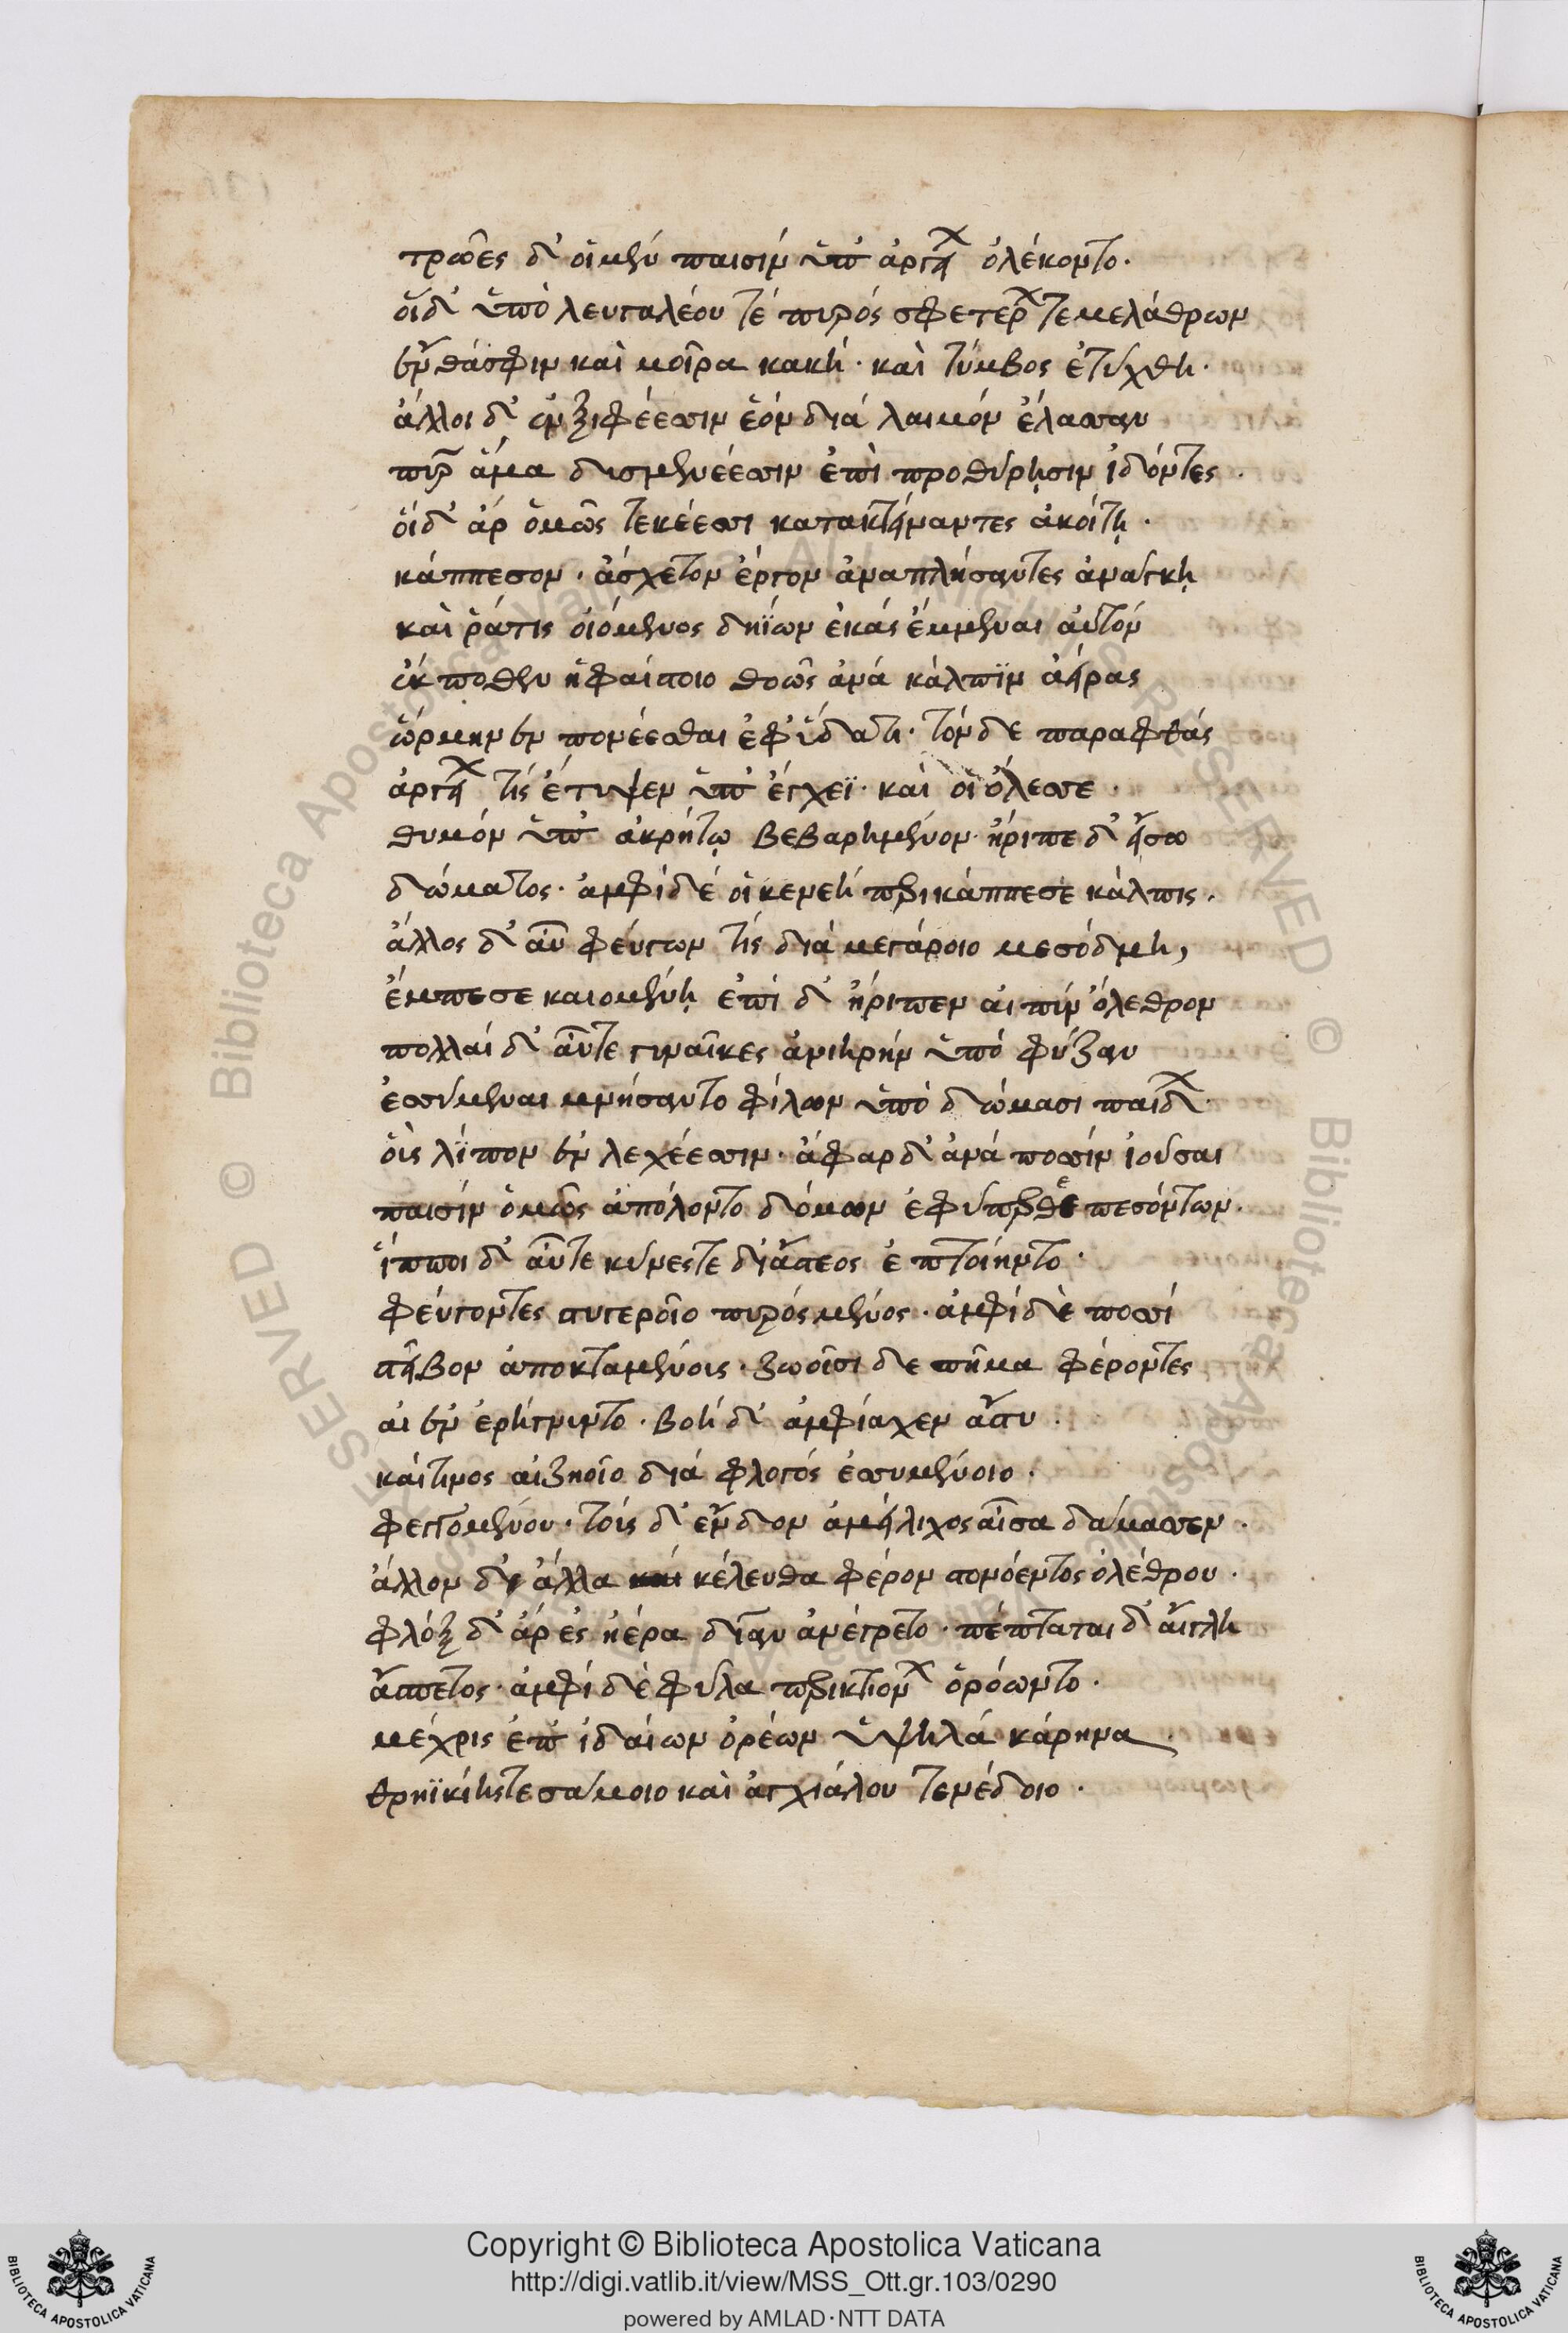 τρῶες δ' οἱ μὲν παισὶν ὑπ' ἀργεί ὀλέκοντο.
οἵδ' ὑπὸ λευγαλέου τὲ πυρός σφετέρ τε μελάθρων
ἔνθάσφιν καὶ μοῖρα κακὴ. καὶ τύμβος ἐτύχθη.
ἄλλοι δ' ἐν ξιφέεσσιν ἑὸν διὰ λαιμὸν ἔλασσαν
πῦρ ἅμα δυσμενέεσσιν ἐπὶ προθύρησιν ἰδόντες.
οἵδ' ἄρ ὁμῶς τεκέεσσι κατακτείναντες ἀκοίτη.
κάππεσον. ἄσχετον ἔργον ἀναπλήσαντες ἀνάγκη
καὶ ῥάτις οἰόμενος δηΐων ἑκὰς ἔμμεναι αὐτὸν
ἔκποθεν ἡφαίστοιο θοῶς ἀνὰ κάλπιν ἀείρας
ὥρμην ἐν πονέεσθαι ἐφ' ὕδατι. τὸν δε παραφθὰς
ἀργεί τὶς ἔτυψεν ὑπ' ἔγχεϊ. καὶ οἱ ὄλεσσε.
θυμὸν ὑπ' ἀκρήτῳ βεβαρημένον. ἤριπε δ' εἴσω
δώματος. ἀμφὶ δέ οἱ κενεὴ περικάππεσε κάλπις.
ἄλλος δ' αὖ φεύγων τὶς διὰ μεγάροιο μεσόδμη,
ἔμπεσε καιομένη ἐπὶ δ' ἤριπεν αἰπὺν ὄλεθρον
πολλαὶ δ' αὖτε γυναῖκες ἀνιηρὴν ὑπὸ φύζαν
ἐσσύμεναι μνήσαντο φίλων ὑπὸ δώμασι παίδ
οἷς λίπον ἐν λεχέεσσιν. ἄφαρ δ' ἀνὰ ποσσὶν ἰοῦσαι
παισὶν ὁμῶς ἀπόλοντο δόμων ἐφύπερθε πεσόντων.
ἵπποι δ' αὖτε κύνεςτε δι' ἄστεος ἐπτοίηντο.
φεύγοντες στυγεροῖο πυρὸς μένος. ἀμφὶ δὲ ποσσὶ
στεῖβον ἀποκταμένοις. ζωοῖσι δε πῆμα φέροντες
αἰ ἐν ἐρήγνυντο. βοὴ δ' ἀμφίαχεν ἄστυ.
καίτινος αἰζηοῖο διὰ φλογὸς ἐσσυμένοιο.
φεγγομένου. τοὺς δ' ἔνδον ἀμείλιχος αἶσα δάμασσεν.
ἄλλον δ' ἄλλα κέλευθα φέρον στονόεντος ὀλέθρου.
φλὸξ δ' ἄρ ἐς ἠέρα δῖαν ἀνέγρετο. πέπταται δ' αἴγλη
ἄσπετος. ἀμφὶ δὲ φύλα περικτιόν ὁρόωντο.
μέχρις ἐπ' ἰδαίων ὀρέων ὑψηλὰ κάρηνα.
θρηϊκίηςτε σάμοιο καὶ ἀγχιάλου τενέδοιο.
Copyright © Biblioteca Apostolica Vaticana
http://digi.vatlib.it/view/MSS_Ott.gr.103/0290
powered by AMLAD·NTT DATA
BIBLIOTECA APOSTOLICA VATICANA
BIBLIOTECA APOSTOLICA VATICANA